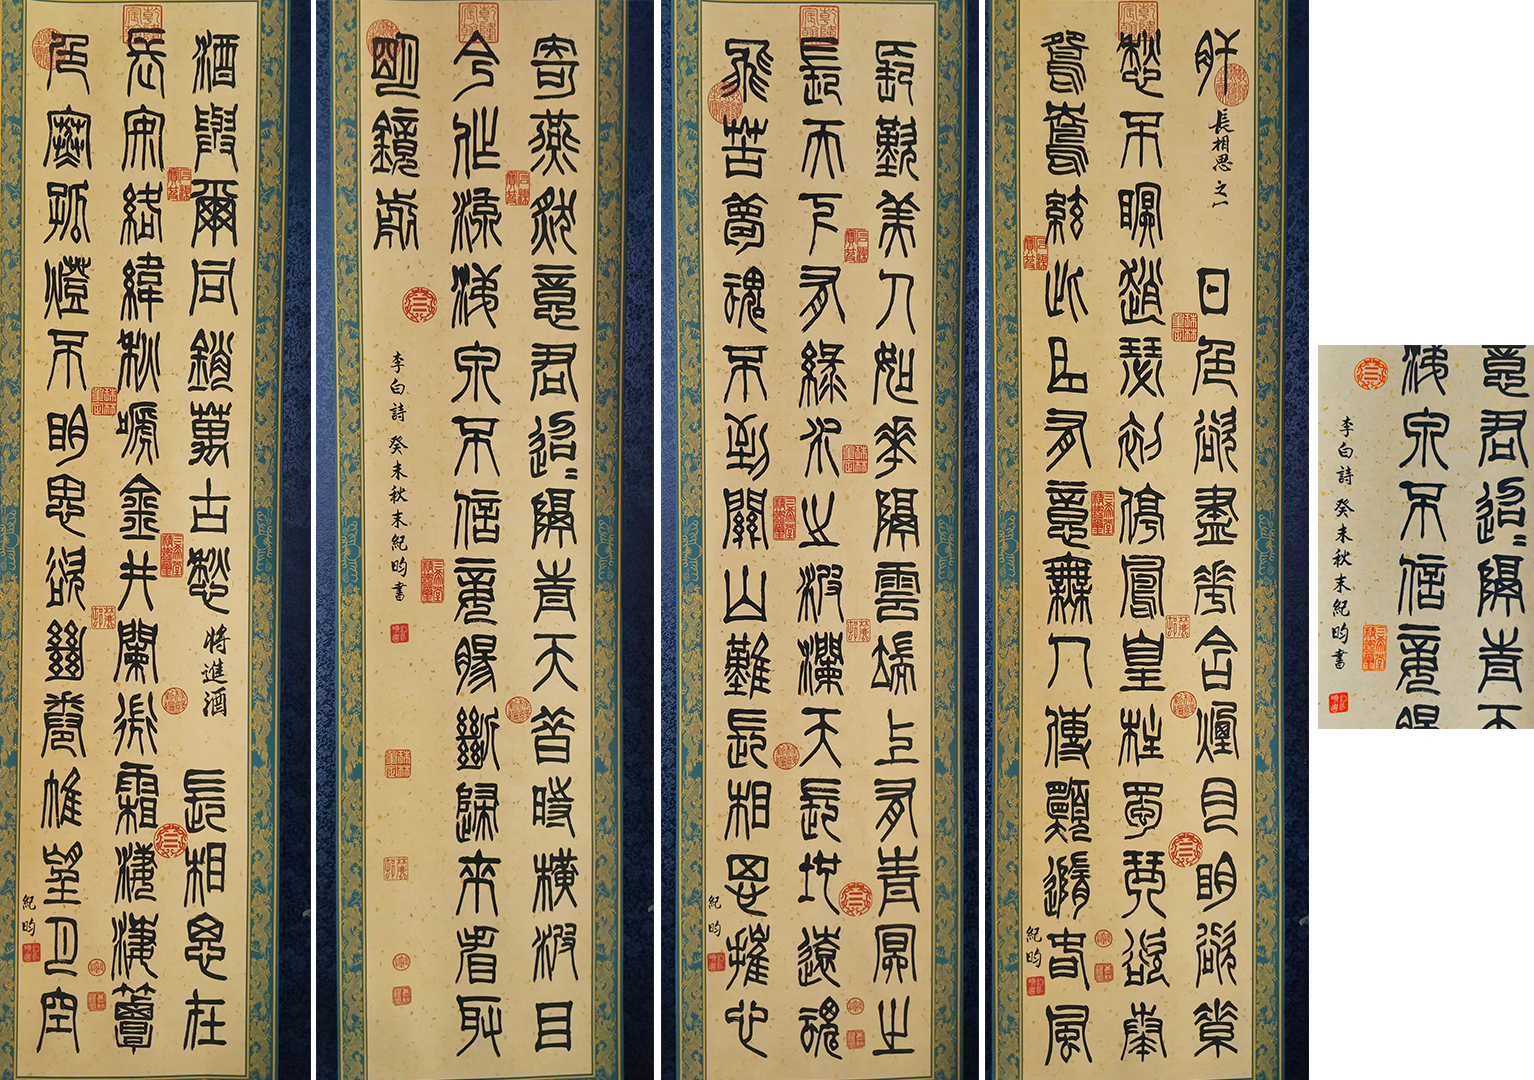 酒與爾同銷萬古愁 將進酒 長相思在
長安絡緯秋啼金井闌微霜淒淒簟
色寒孤燈不明思欲絕卷帷望月空
紀昀
長歎美人如花隔雲端上有青冥之
長天下有綠水之波瀾天長地遠魂
飛苦夢魂不到關山難長相思摧心
紀昀
肝 長相思之一 日色欲盡花含煙月明欲素
愁不眠趙瑟初停鳳皇柱蜀琴欲奏
鴛鴦絃此曲有意無人傳願隨春風
紀昀
寄燕然意君迢〻隔青天昔時橫波目
今作流淚泉不信妾腸斷歸來看取
明鏡前
李白詩 癸未秋末紀昀書
意君迢〻隔青天
淚泉不信妾腸
李白詩 癸未秋末紀昀書